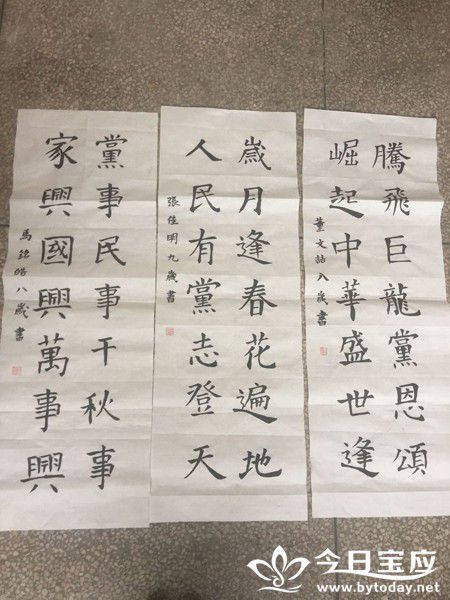 騰飛巨龍黨恩頌
崛起中華盛世逢
董文 八歲書
歲月逢春花遍地
人民有黨志登天
張佳明九歲書
黨事民事千秋事
家興國興萬事興
馬銘皓八歲書
今日宝应
www.bytoday.net